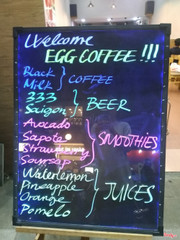 Welcome
EGG COFFEE !!!
Black
Milk } COFFEE
333
Saigon } BEER
Avocado
Sapote
Strawberry } SMOOTHIES
Soursap
Waterlemon
Pineapple
Orange } JUICES
Pomelo